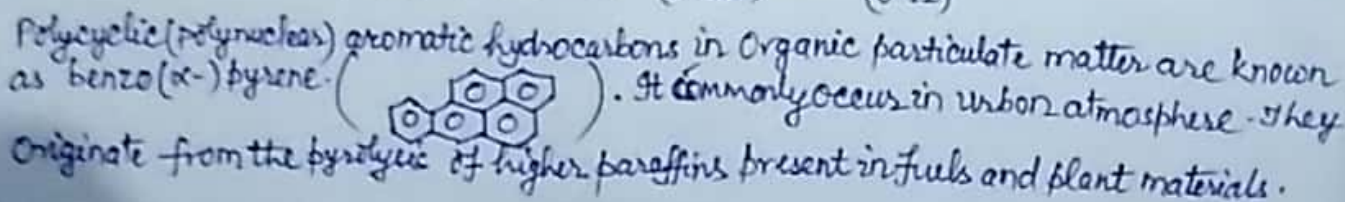 Polycyclic (polynuclear) aromatic hydrocarbons in Organic particulate matter are known
as benzo(α-) pyrene. ( ). It commonly occurs in urbon atmosphere. They
Originate from the pyrolysis of higher paraffins present in fuels and plant materials.